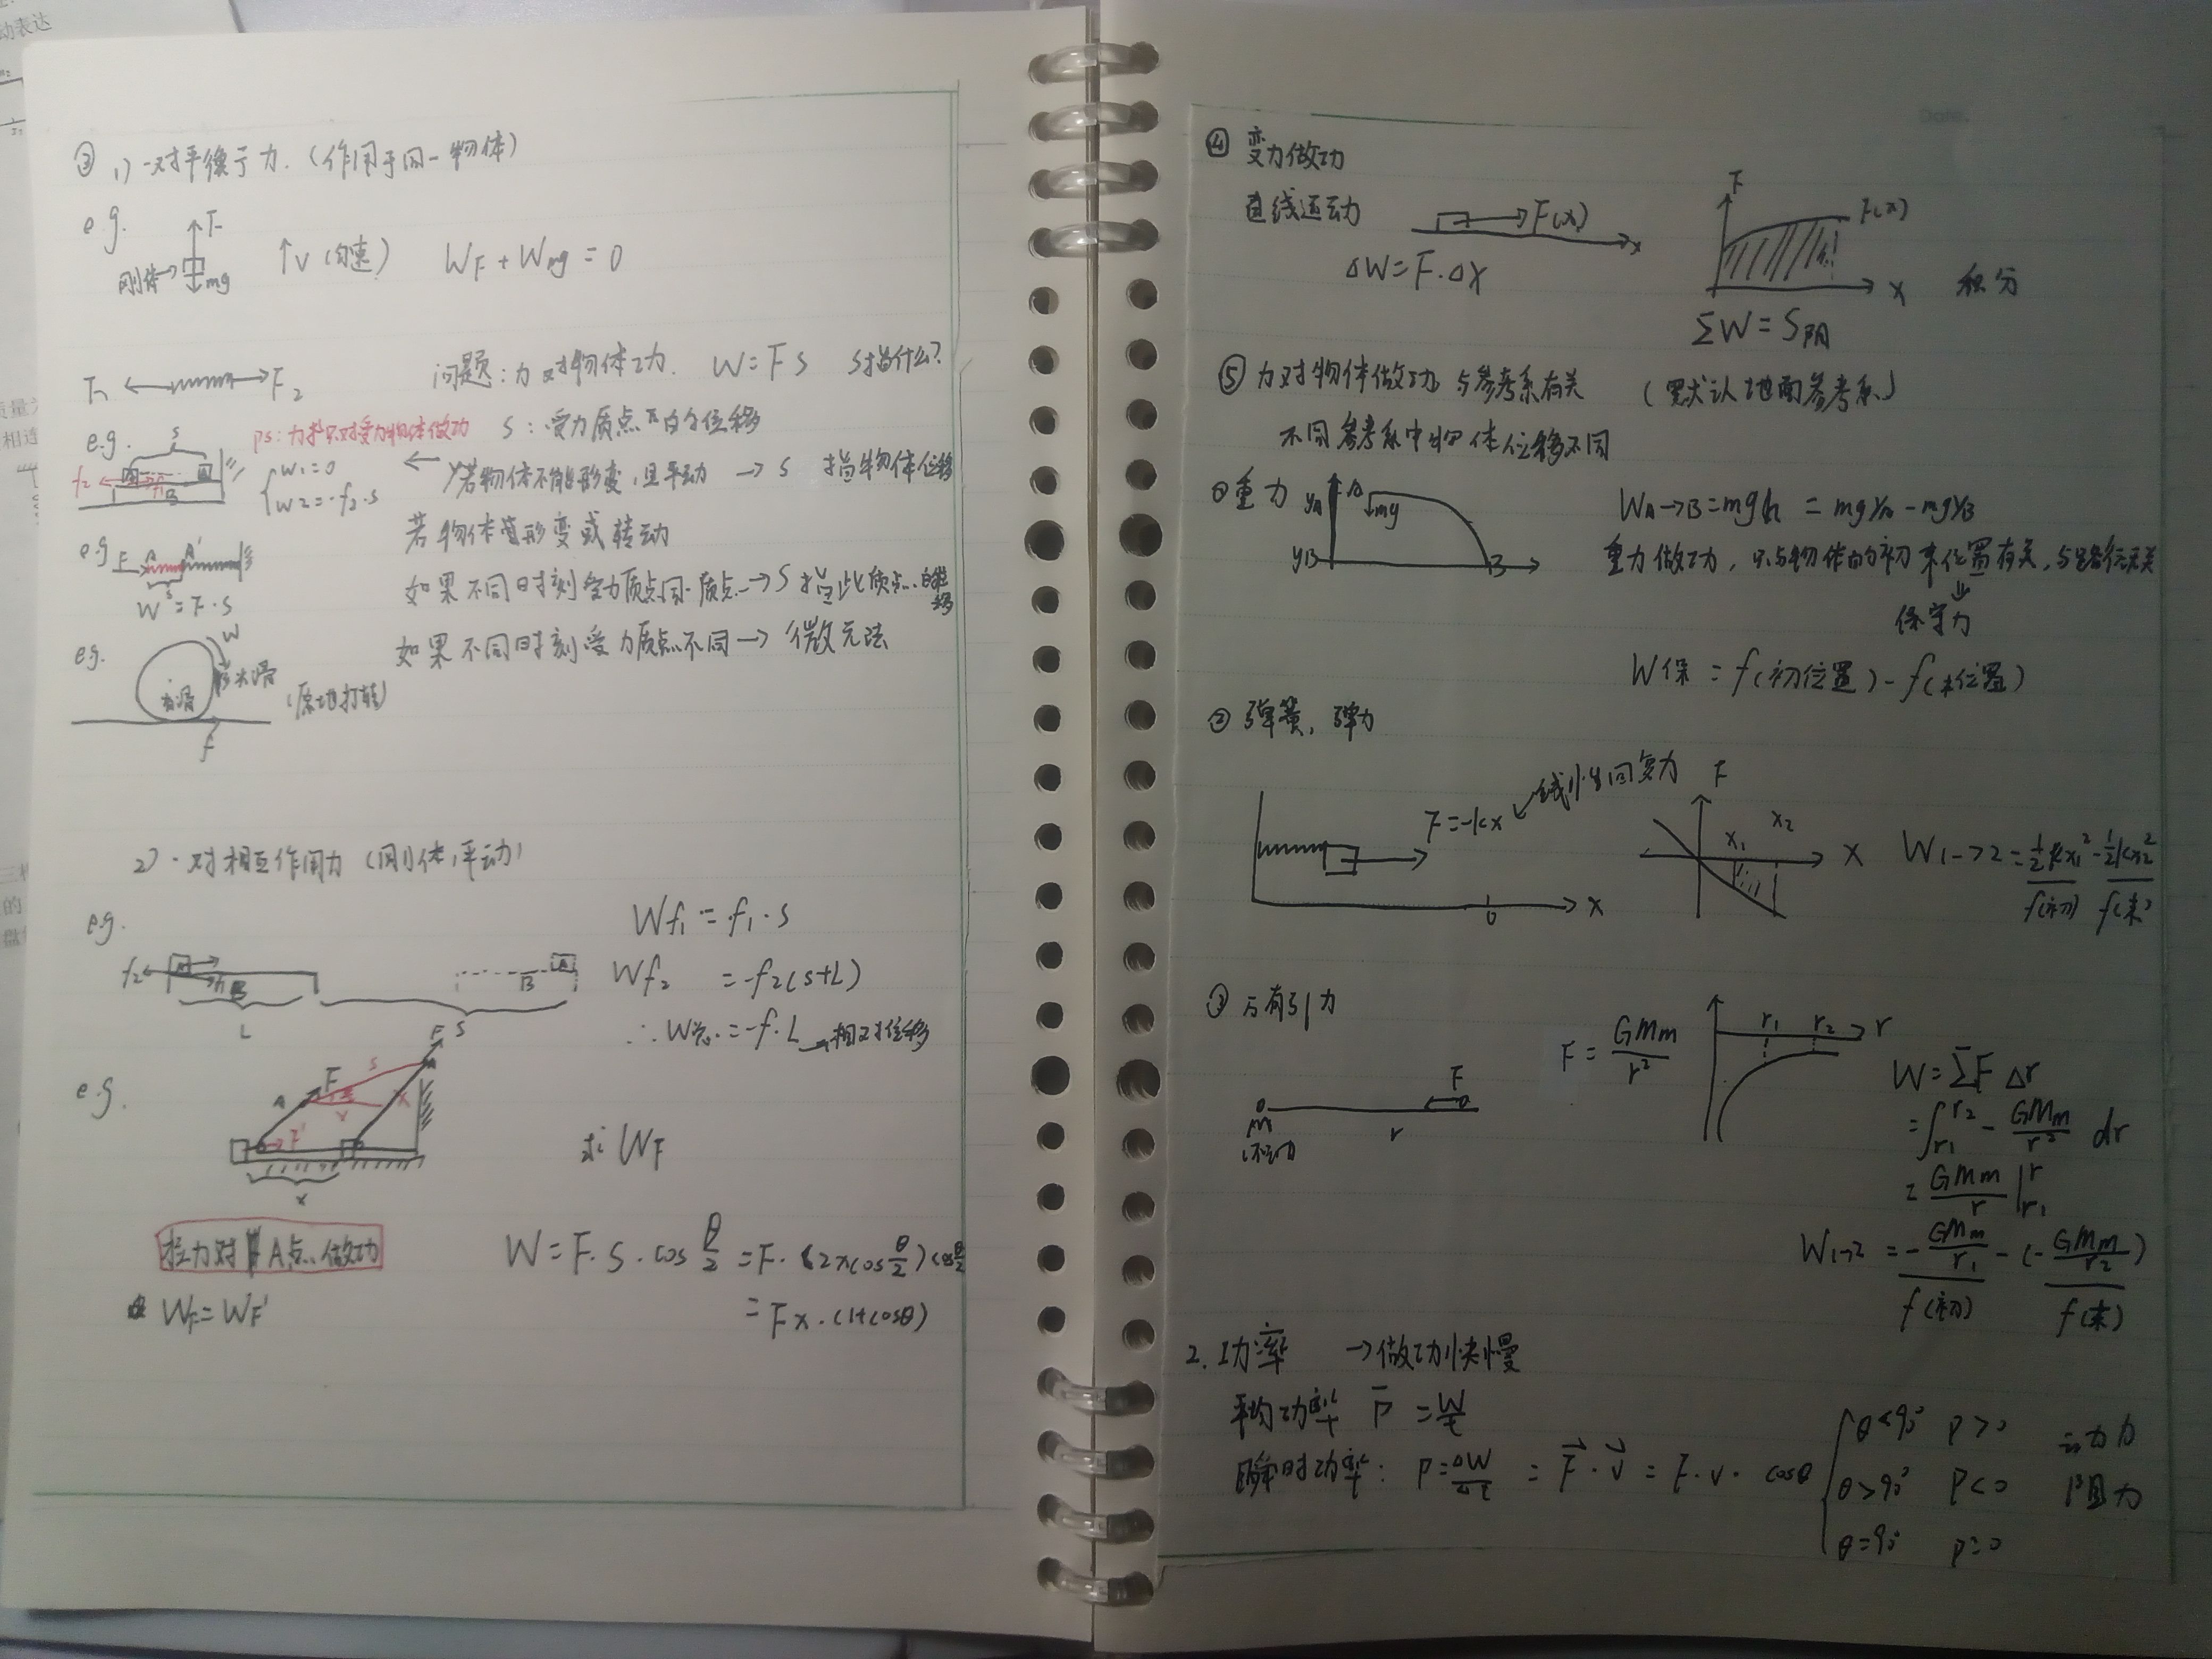 ③ 1) 一对平衡力.（作用于同一物体）
e.g.
F
↑v (匀速)  W_F + W_mg = 0
刚体→
mg
F₁ ← → F₂
问题: 力对物体功. W = F s  s指什么?
ps: 力只对受力物体做功
s: 受力质点的位移
e.g.
s
f₂ f₁ B
{ W₁ = 0
W₂ = -f₂·s
← 若物体不能形变, 且平动 → s 指物体位移
若物体有形变或转动
e.g.
F A A'
s
W = F·s
如果不同时刻受力质点同一质点 → s 指此质点的位移
如果不同时刻受力质点不同 → 微元法
e.g.
W
(原地打转)
f
2) 一对相互作用力 (刚体, 平动)
e.g.
f₂ A f₁ B
L
S
B A
Wf₁ = f₁·s
Wf₂ = -f₂(s+L)
∴ W总 = -f·L → 相对位移
e.g.
A F s F
x x
F'
x
求 W_F
拉力对A点做功
W_F = W_F'
W = F·s·cos θ/2 = F·(2x cos θ/2) cos θ/2
= Fx·(1+cosθ)
④ 变力做功
直线运动
F(x)
x
ΔW = F·Δx
F
F(x)
x
积分
ΣW = S阴
⑤ 力对物体做功与参考系有关 （默认地面参考系）
不同参考系中物体位移不同
① 重力
y_A A mg
y_B B
W_A→B = mgh = mgy_A - mgy_B
重力做功, 只与物体的初末位置有关, 与路径无关
⇓
保守力
W保 = f(初位置) - f(末位置)
② 弹簧, 弹力
F = -kx ↙ 线性回复力
0 x
F
x₁ x₂
x
W₁→₂ = ½kx₁² - ½kx₂²
f(初) f(末)
③ 万有引力
F = GMm/r²
r₁ r₂ r
F
M r
(不动)
W = ΣF Δr
= ∫_r₁^r₂ - GMm/r² dr
= GMm/r |_r₁^r
W₁→₂ = -GMm/r₁ - (-GMm/r₂)
f(初) f(末)
2. 功率 → 做功快慢
平均功率 P̄ = W/t
瞬时功率: P = ΔW/Δt = F⃗·v⃗ = F·v·cosθ
{ θ<90° P>0 动力
θ>90° P<0 阻力
θ=90° P=0